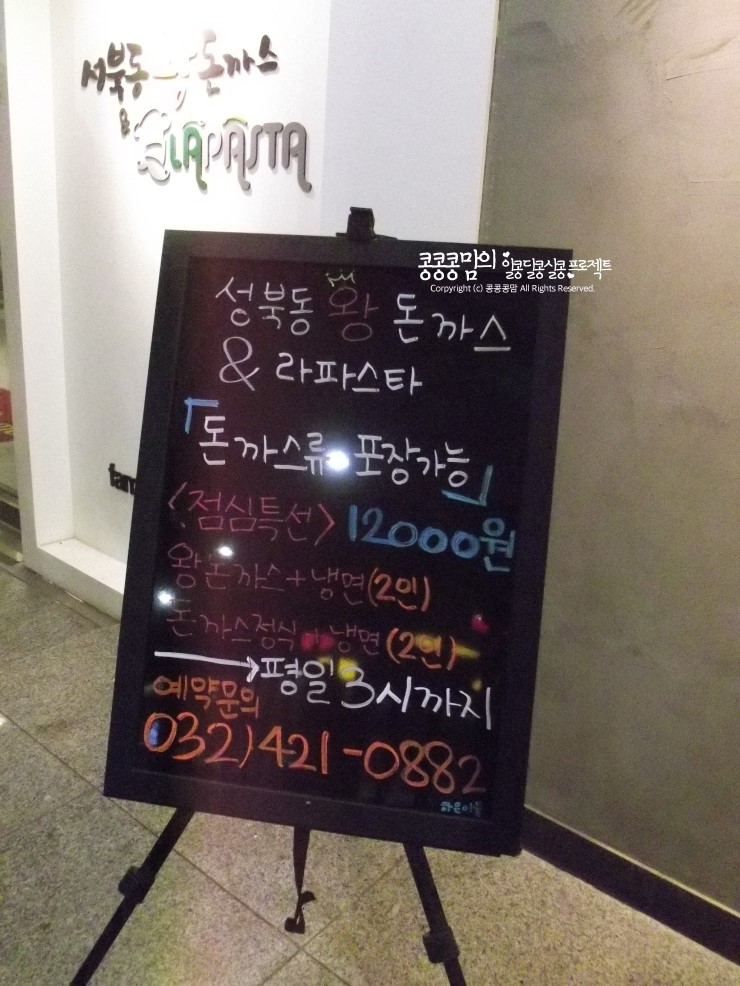 성북동 왕 돈까스
& LAPASTA
콩콩콩맘의 알콩달콩실콩 프로젝트
Corpyright (c) 콩콩콩맘 All Rights Reserved.
성북동 왕 돈까스
& 라파스타
「돈까스류 포장가능」
<점심특선> 12000원
왕돈까스+냉면(2인)
돈까스정식+냉면(2인)
→평일 3시까지
예약문의
032)421-0882